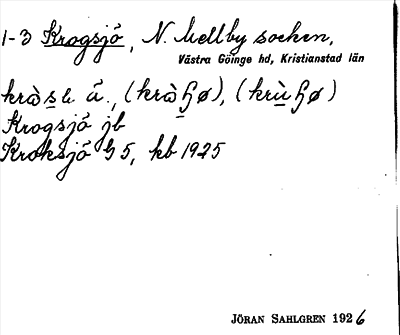 1-3 Krogsjö, N. Mellby socken,
Västra Göinge hd, Kristianstad län
Krogsjö jb
Kroksjö G 5, kb 1925
JÖRAN SAHLGREN 1926